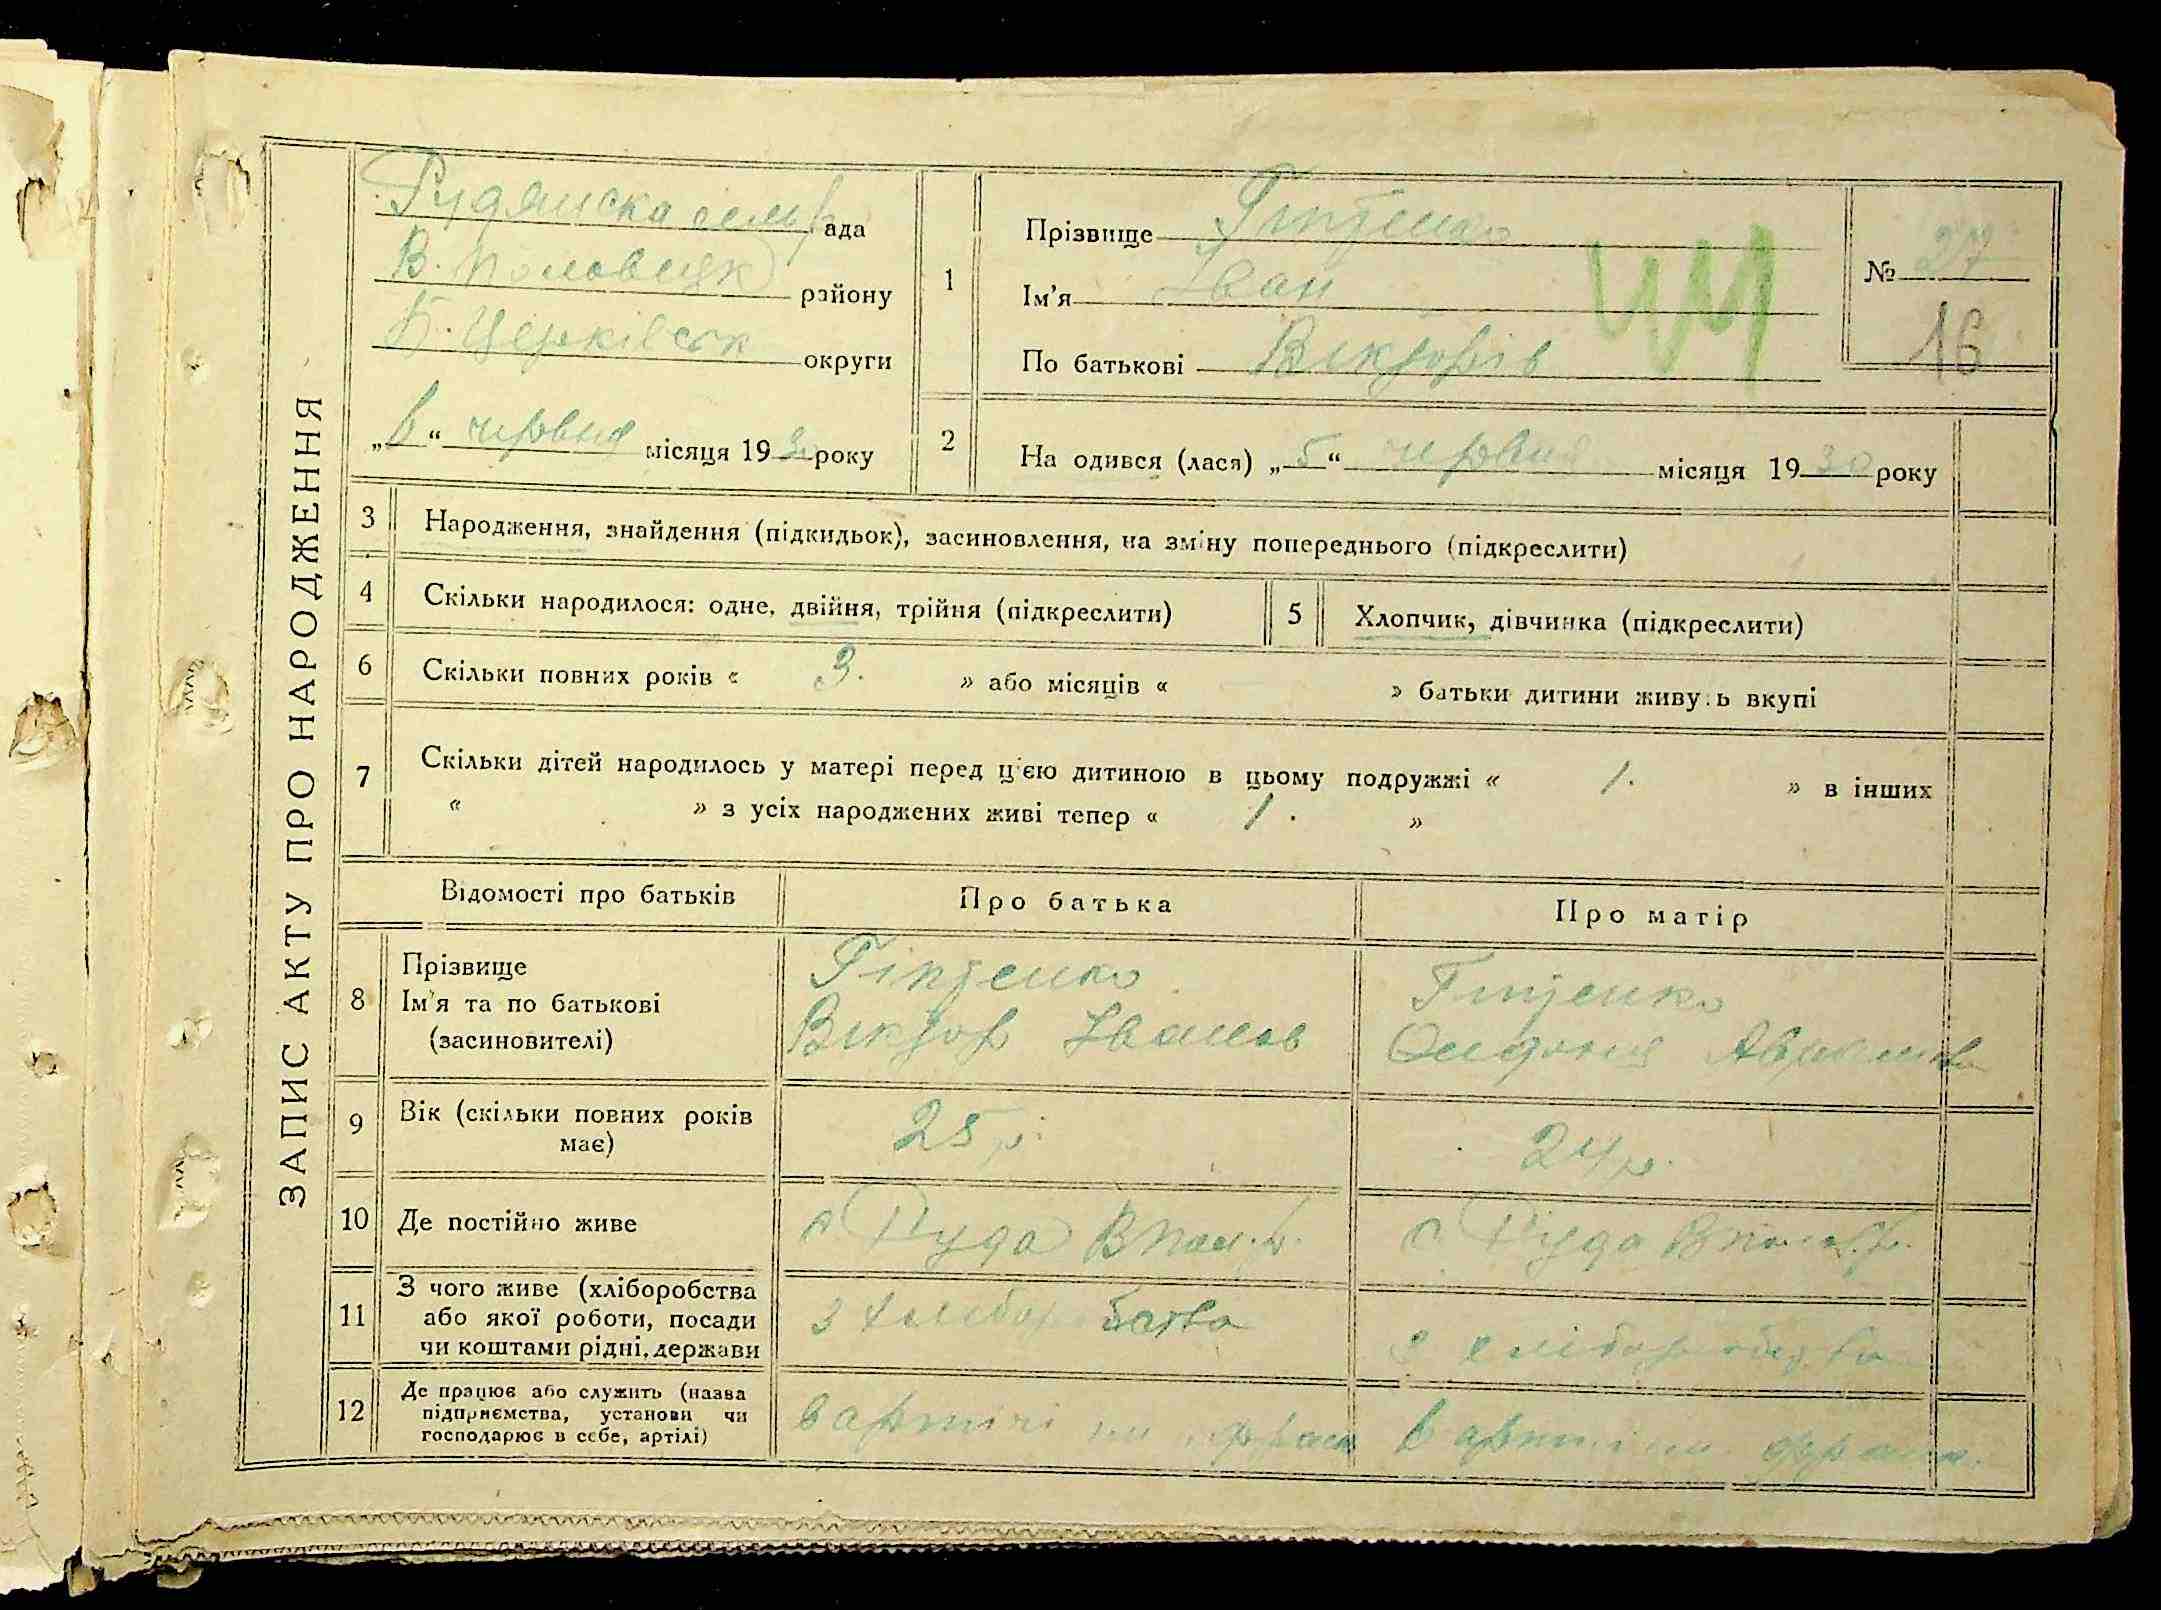 ЗАПИС АКТУ ПРО НАРОДЖЕННЯ
Рудянска сельрада
В. Половецк району
Б. Церківськ округи
„6“ червня місяця 1930 року
1
Прізвище
Ім'я Іван
По батькові Вікторів
№ 27
16
2 На одився (лася) „5“ червня місяця 1930 року
3 Народження, знайдення (підкидьок), засиновлення, на зміну попереднього (підкреслити)
4 Скільки народилося: одне, двійня, трійня (підкреслити)
5 Хлопчик, дівчинка (підкреслити)
6 Скільки повних років « 3. » або місяців « » батьки дитини живуть вкупі
7 Скільки дітей народилось у матері перед ц'єю дитиною в цьому подружжі « 1. » в інших
« » з усіх народжених живі тепер « 1. »
Відомості про батьків Про батька Про матір
8 Прізвище
Ім'я та по батькові
(засиновителі)
Віктор Іванов
9 Вік (скільки повних років
має)
25 р.
24 р.
10 Де постійно живе
с Руда В Пол. р.
с. Руда В Полов. р.
11 З чого живе (хліборобства
або якої роботи, посади
чи коштами рідні, держави
з хліборобства
з хліборобства
12 Де працює або служить (назва
підприємства, установи чи
господарює в себе, артілі)
в артілі
в артілі